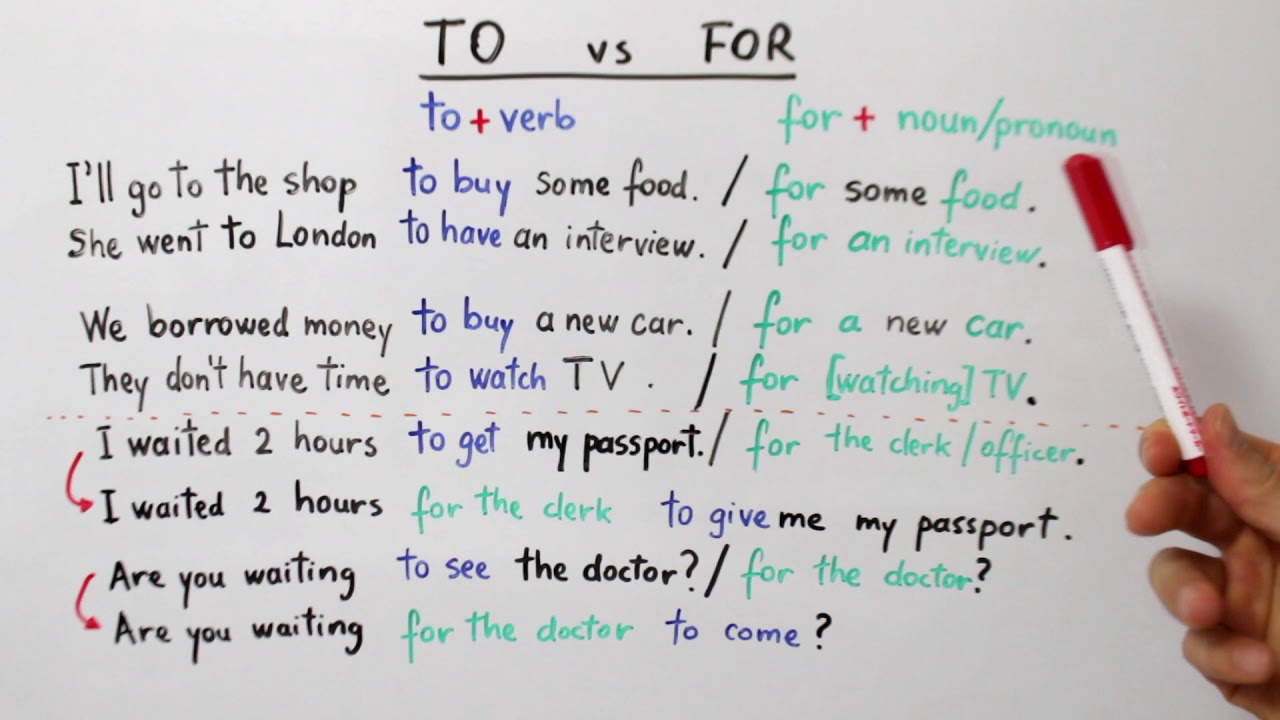 TO vs FOR
to + verb for + noun/pronoun
I'll go to the shop to buy some food. / for some food.
She went to London to have an interview. / for an interview.
We borrowed money to buy a new car. / for a new car.
They don't have time to watch TV. / for [watching] TV.
I waited 2 hours to get my passport. / for the clerk/officer.
I waited 2 hours for the clerk to give me my passport.
Are you waiting to see the doctor? / for the doctor?
Are you waiting for the doctor to come?